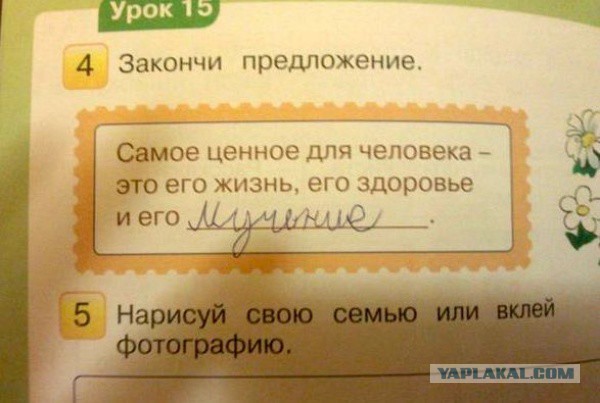 Урок 15
4 Закончи предложение.
Самое ценное для человека –
это его жизнь, его здоровье
и его мучение.
5 Нарисуй свою семью или вклей
фотографию.
YAPLAKAL.COM